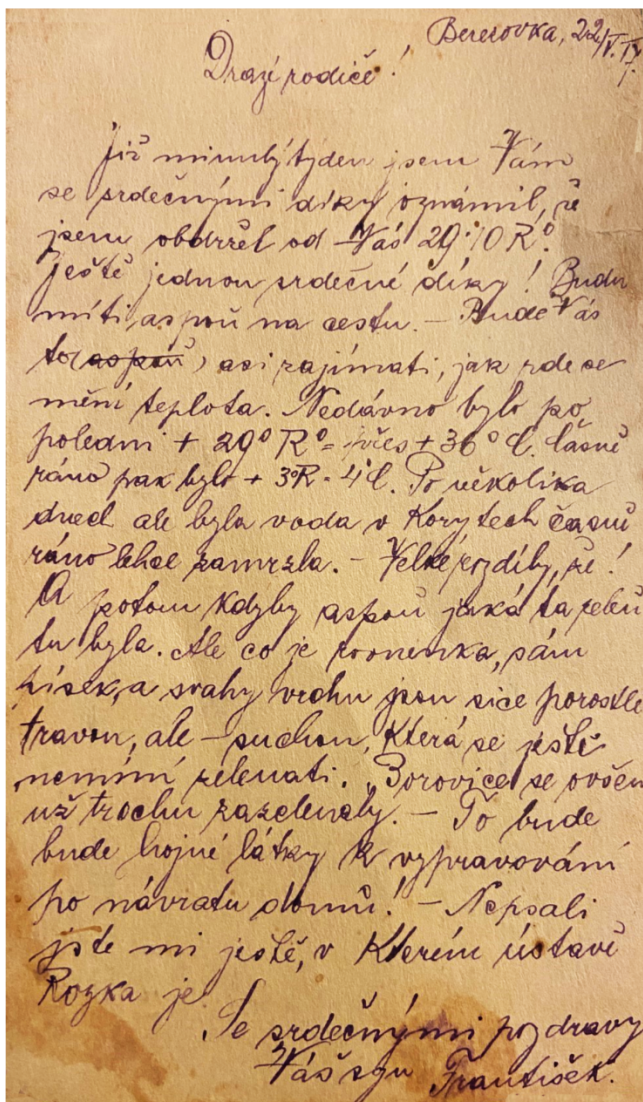 Beresovka, 22/V. 17
Drazí rodiče!
Již minulý týden jsem Vám
se srdečnými díky oznámil, že
jsem obdržel od Vás 29·10 R.
Ještě jednou srdečné díky! Budu
míti aspoň na cestu. – Bude Vás
to (aspoň) asi zajímati, jak zde se
mění teplota. Nedávno bylo po
poledni + 29° R° = přes + 36° C. časně
ráno pak bylo + 3°R = 4°C. Po několika
dnech ale byla voda v Korytech časně
ráno lehce zamrzla. – Velké rozdíly, že!
A potom kdyby aspoň jaká ta zeleň
tu byla. Ale co je rovninka, sám
písek, a svahy vrchu jsou sice porostlé
travou, ale – suchou, která se ještě
nemíní zelenati. Borovice se ovšem
už trochu zazelenaly. – To bude
bude hojné látky k vypravování
po návratu domů! – Nepsali
jste mi ještě, v kterém ústavě
je.
Se srdečnými pozdravy
Váš syn František.